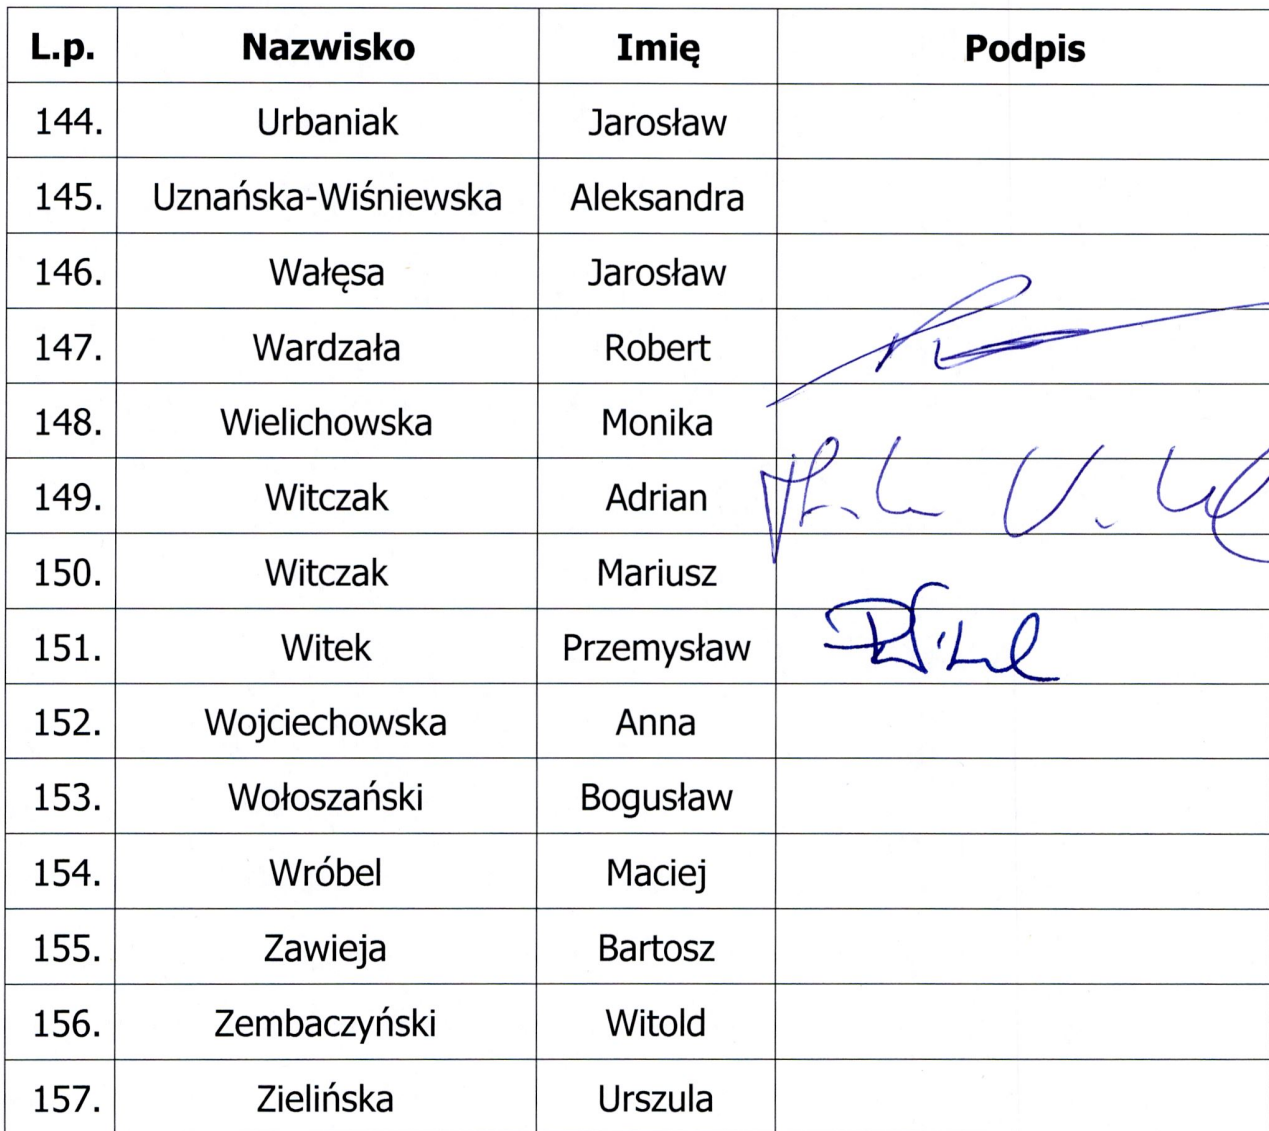 L.p. Nazwisko Imię Podpis
144. Urbaniak Jarosław
145. Uznańska-Wiśniewska Aleksandra
146. Wałęsa Jarosław
147. Wardzała Robert
148. Wielichowska Monika
149. Witczak Adrian
150. Witczak Mariusz
151. Witek Przemysław
152. Wojciechowska Anna
153. Wołoszański Bogusław
154. Wróbel Maciej
155. Zawieja Bartosz
156. Zembaczyński Witold
157. Zielińska Urszula